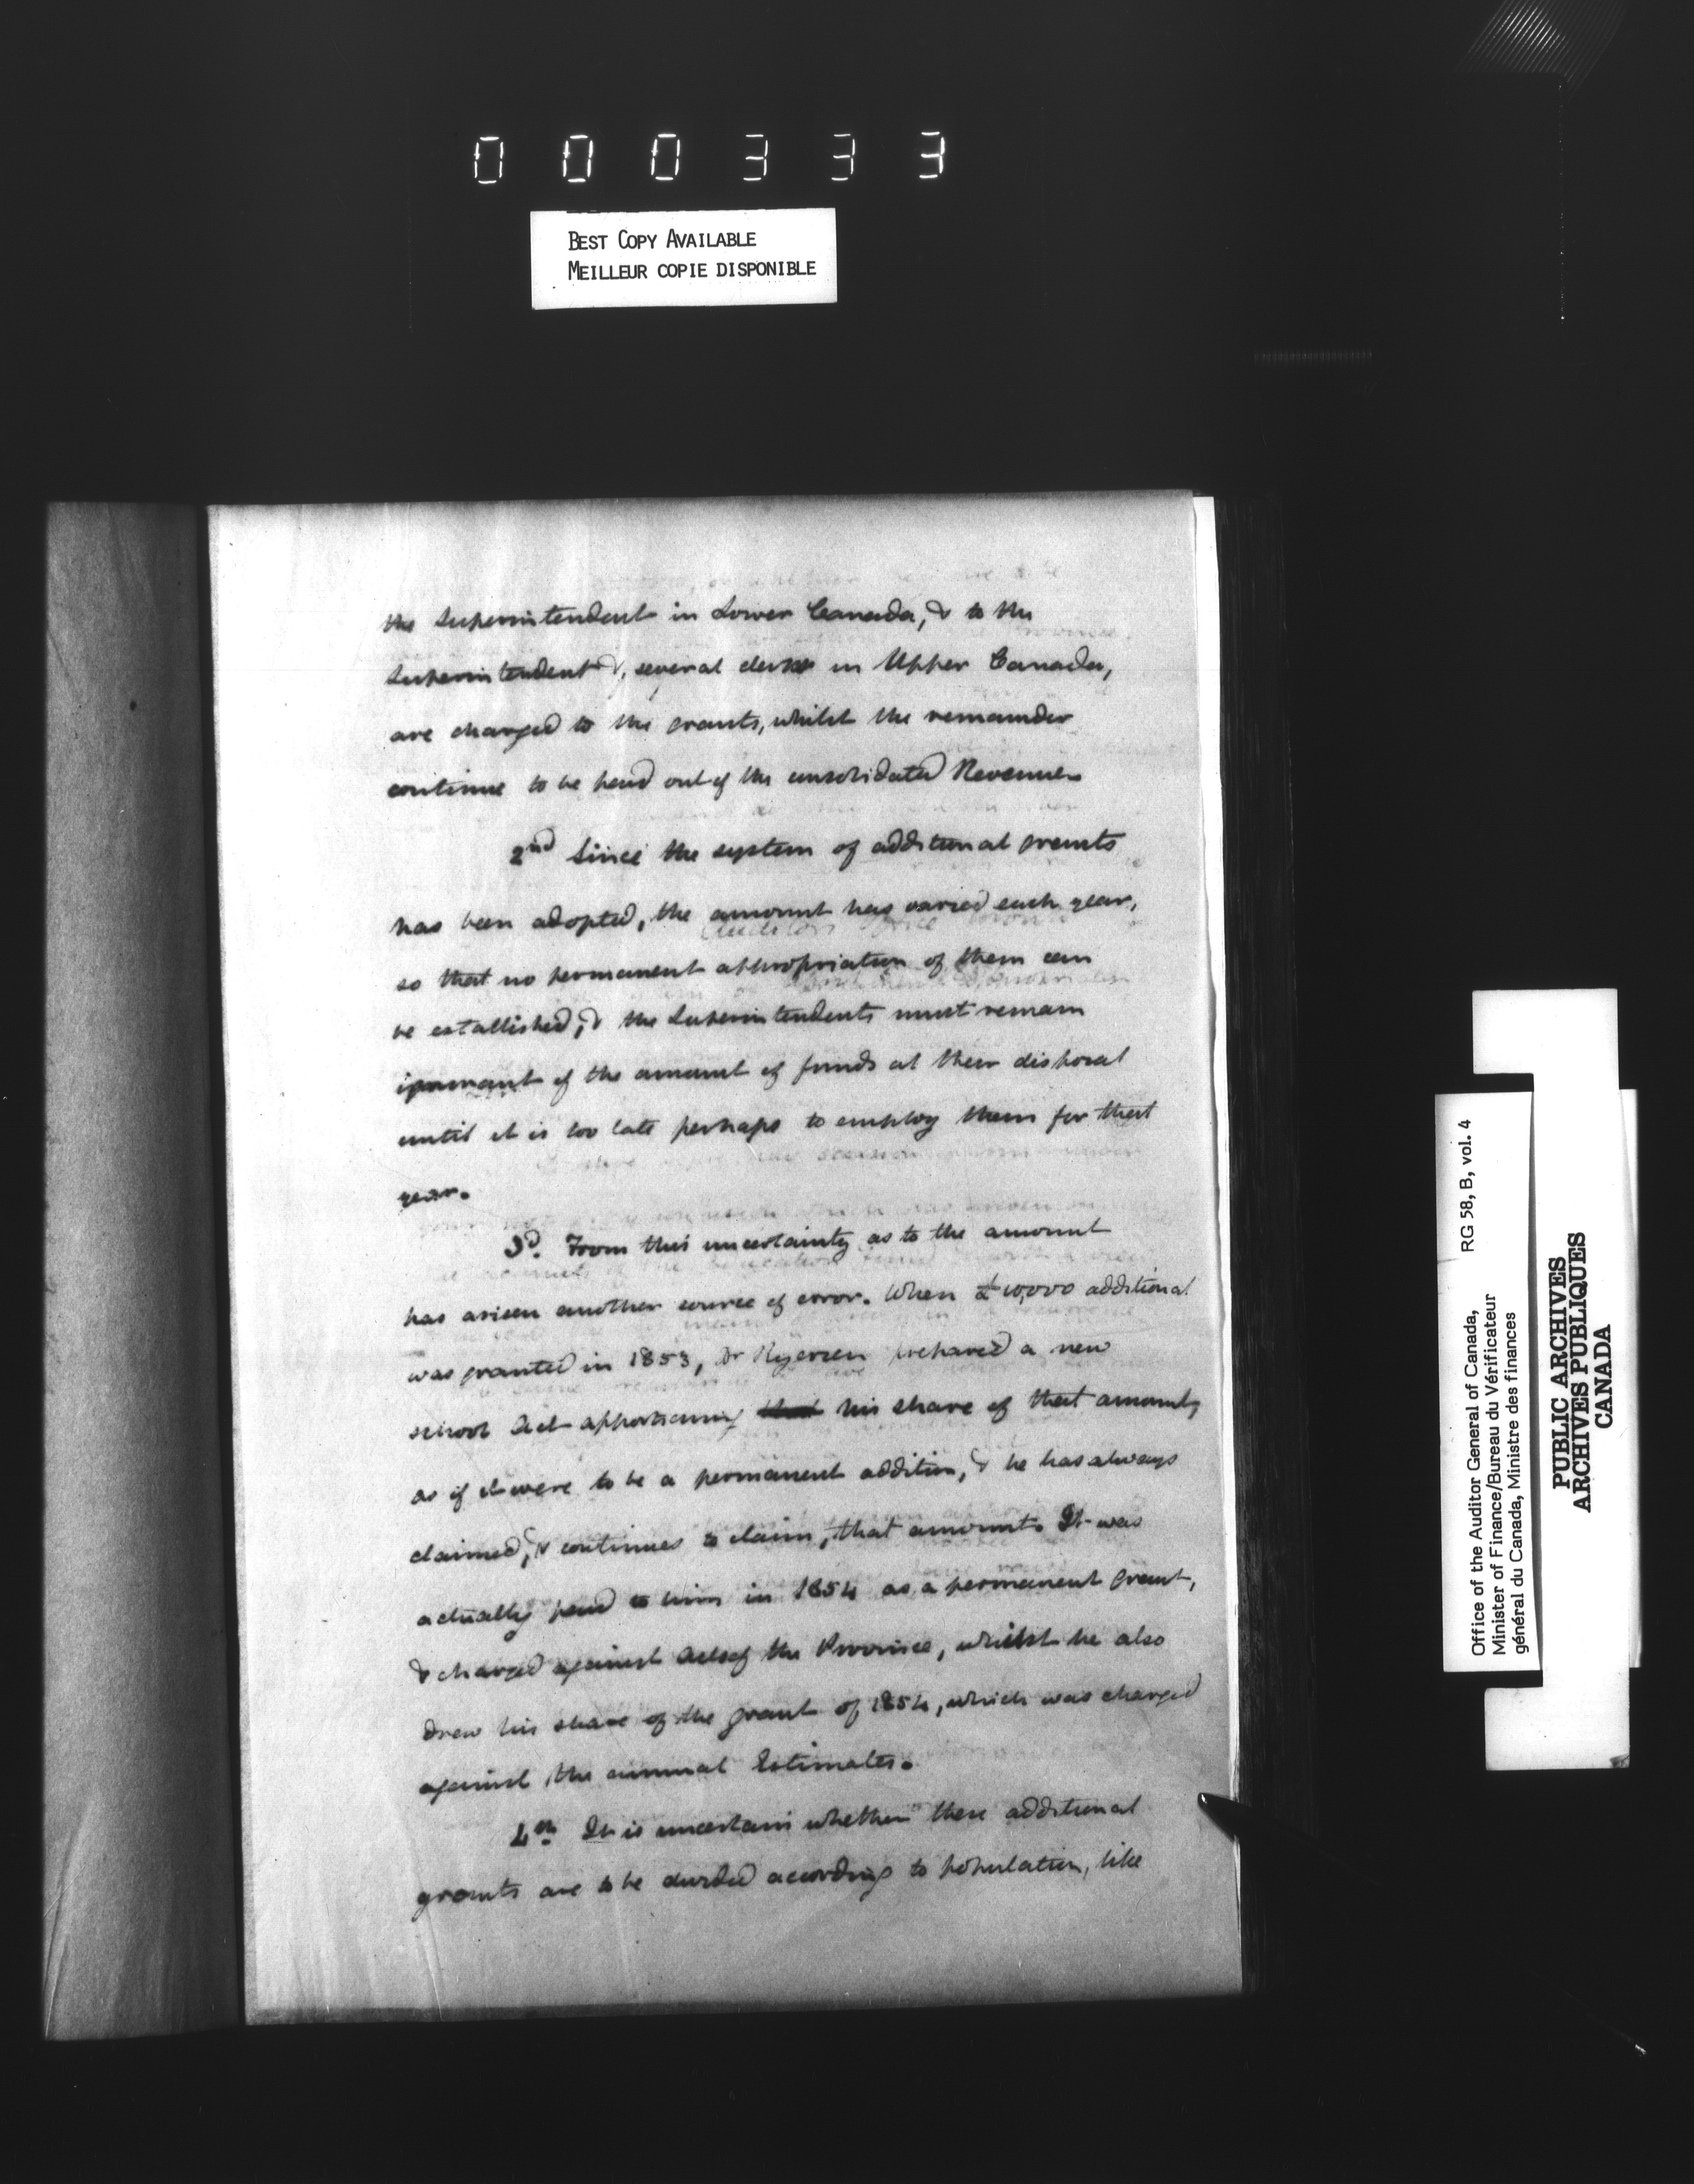 000333
BEST COPY AVAILABLE
MEILLEUR COPIE DISPONIBLE
the Superintendent in Lower Canada, & to the
Superintendent &, several clerks in Upper Canada,
are charged to the grants, whilst the remainder
continue to be paid out of the consolidated Revenue.
2nd Since the system of additional grants
has been adopted, the amount has varied each year,
so that no permanent appropriation of them can
be established, & the Superintendents must remain
ignorant of the amount of funds at their disposal
until it is too late perhaps to employ them for that
year.
3d. From this uncertainty as to the amount
has arisen another source of error. When £10,000 additional
was granted in 1853, Dr Ryerson prepared a new
school Act apportioning his share of that amount,
as if it were to be a permanent addition, & he has always
claimed, & continues to claim, that amount. It was
actually paid to him in 1854 as a permanent grant,
& charged against Acts of the Province, whilst he also
drew his share of the grant of 1854, which was charged
against the annual Estimates.
4th It is uncertain whether these additional
grants are to be divided according to population, like
Office of the Auditor General of Canada, RG 58, B, vol. 4
Minister of Finance/Bureau du Vérificateur
général du Canada, Ministre des finances
PUBLIC ARCHIVES
ARCHIVES PUBLIQUES
CANADA